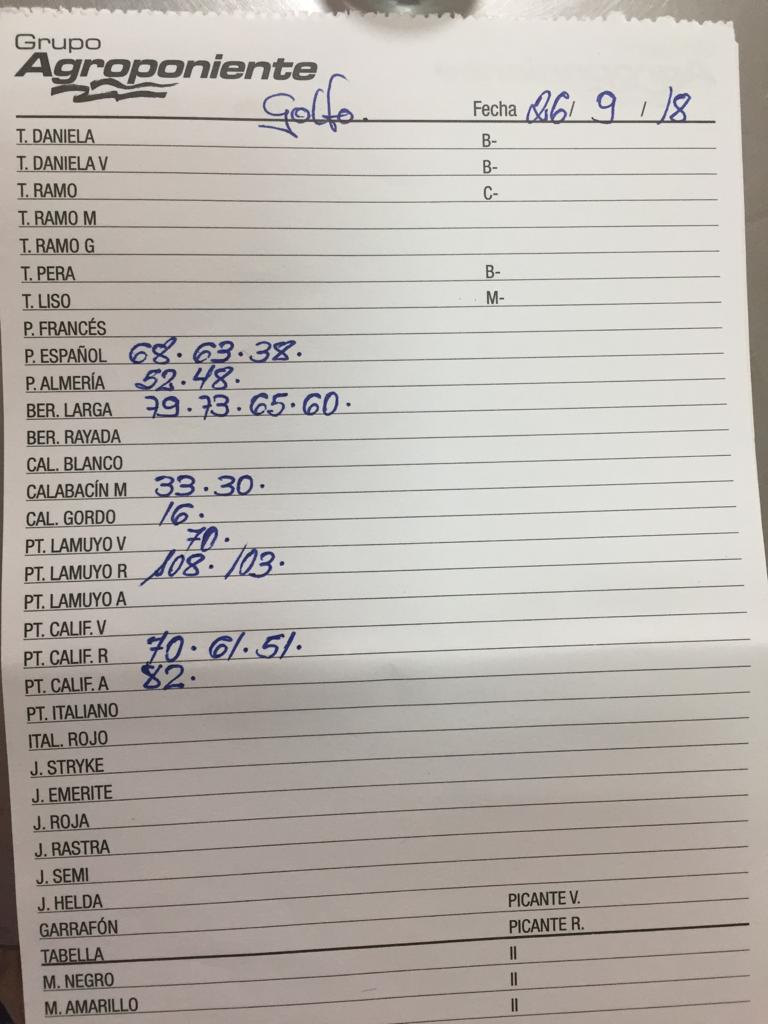 Grupo
Agroponiente
Golfo. Fecha 26/ 9 / 18
T. DANIELA B-
T. DANIELA V B-
T. RAMO C-
T. RAMO M
T. RAMO G
T. PERA B-
T. LISO M-
P. FRANCÉS
P. ESPAÑOL 68. 63. 38.
P. ALMERÍA 52. 48.
BER. LARGA 79. 73. 65. 60.
BER. RAYADA
CAL. BLANCO
CALABACÍN M 33. 30.
CAL. GORDO 16.
PT. LAMUYO V 70.
PT. LAMUYO R 108. 103.
PT. LAMUYO A
PT. CALIF. V
PT. CALIF. R 70. 61. 51.
PT. CALIF. A 82.
PT. ITALIANO
ITAL. ROJO
J. STRYKE
J. EMERITE
J. ROJA
J. RASTRA
J. SEMI
J. HELDA PICANTE V.
GARRAFÓN PICANTE R.
TABELLA II
M. NEGRO II
M. AMARILLO II